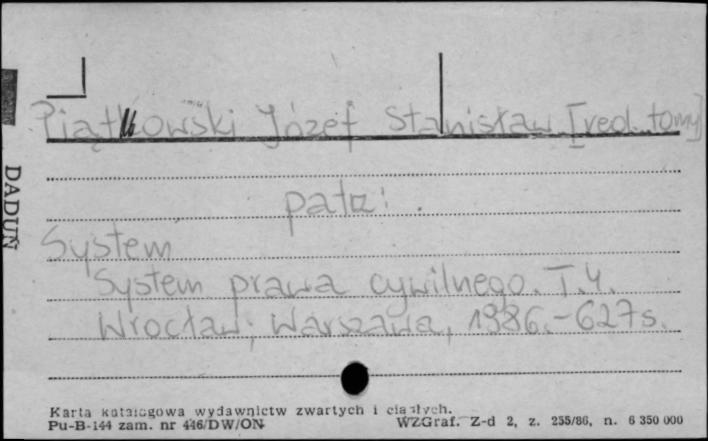 Piątkowski Józef Stanisław [red. tomu]
patrz:
System
System prawa cywilnego. T.4.
Wrocław; Warszawa, 1986.-627s.
DADUŃ
Karta katalogowa wydawnictw zwartych i ciągłych.
Pu-B-144 zam. nr 446/DW/ON
WZGraf. Z-d 2, z. 255/86, n. 6 350 000